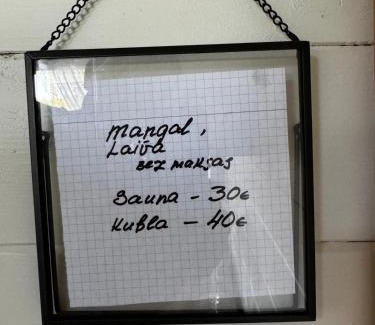 mangal,
Laiva
bez maksas
Sauna - 30€
Kubla - 40€